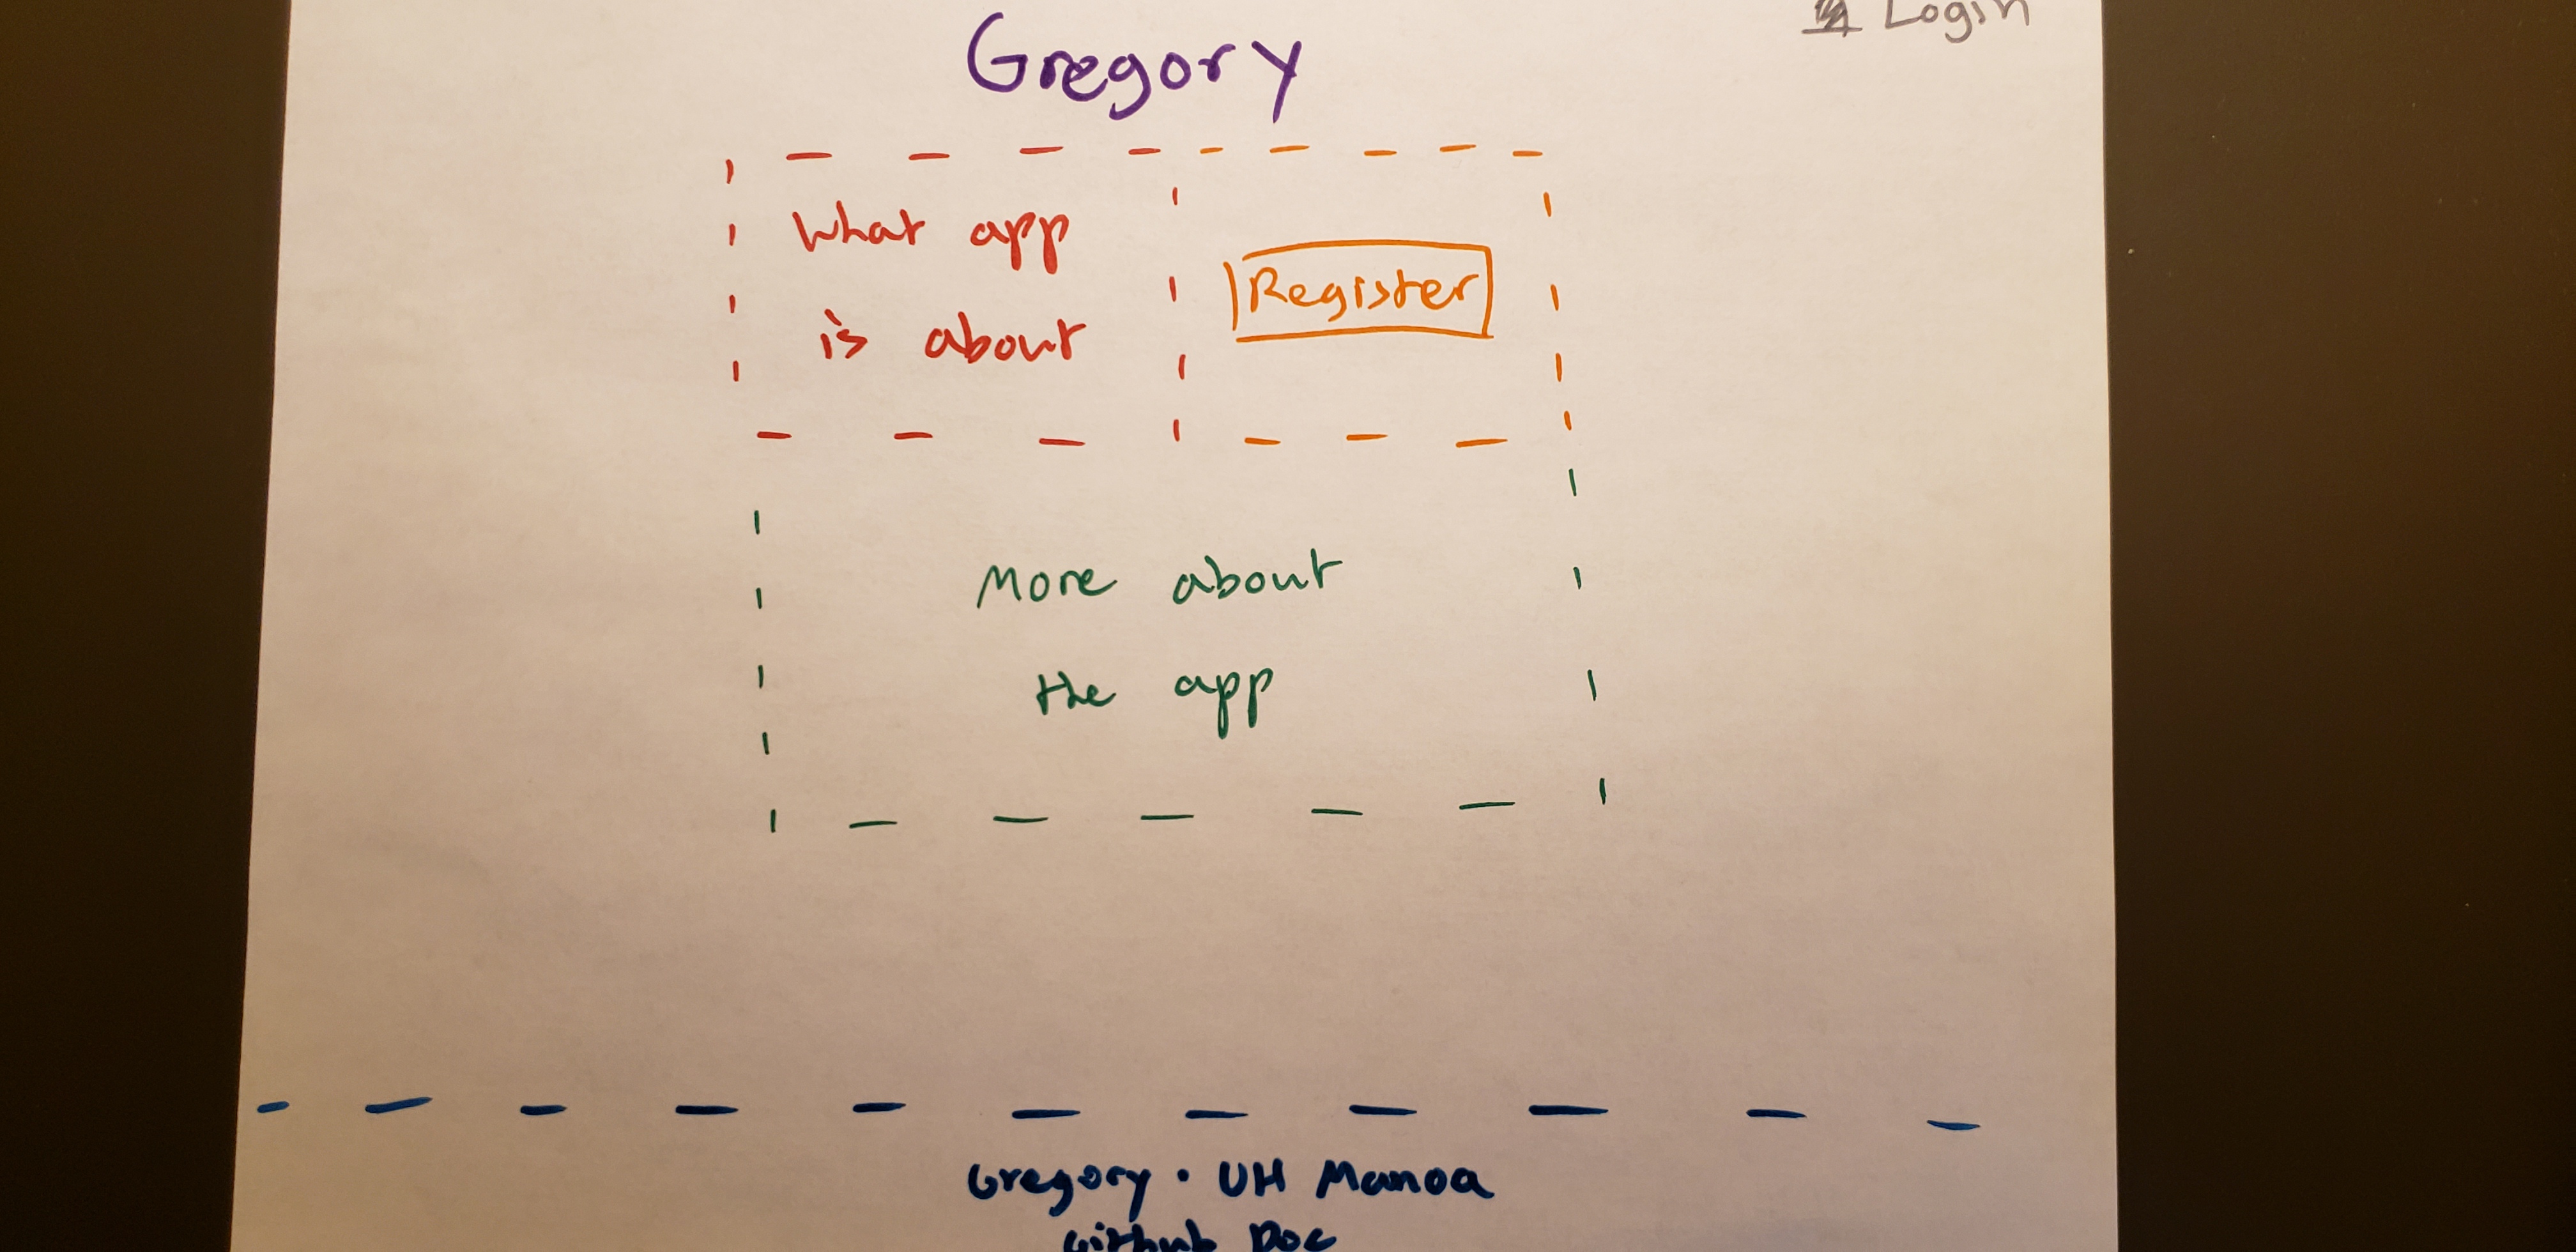 Login
Gregory
What app
is about
Register
More about
the app
Gregory • UH Manoa
Github Doc